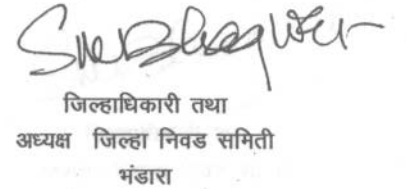 जिल्हाधिकारी तथा
अध्यक्ष जिल्हा निवड समिती
भंडारा